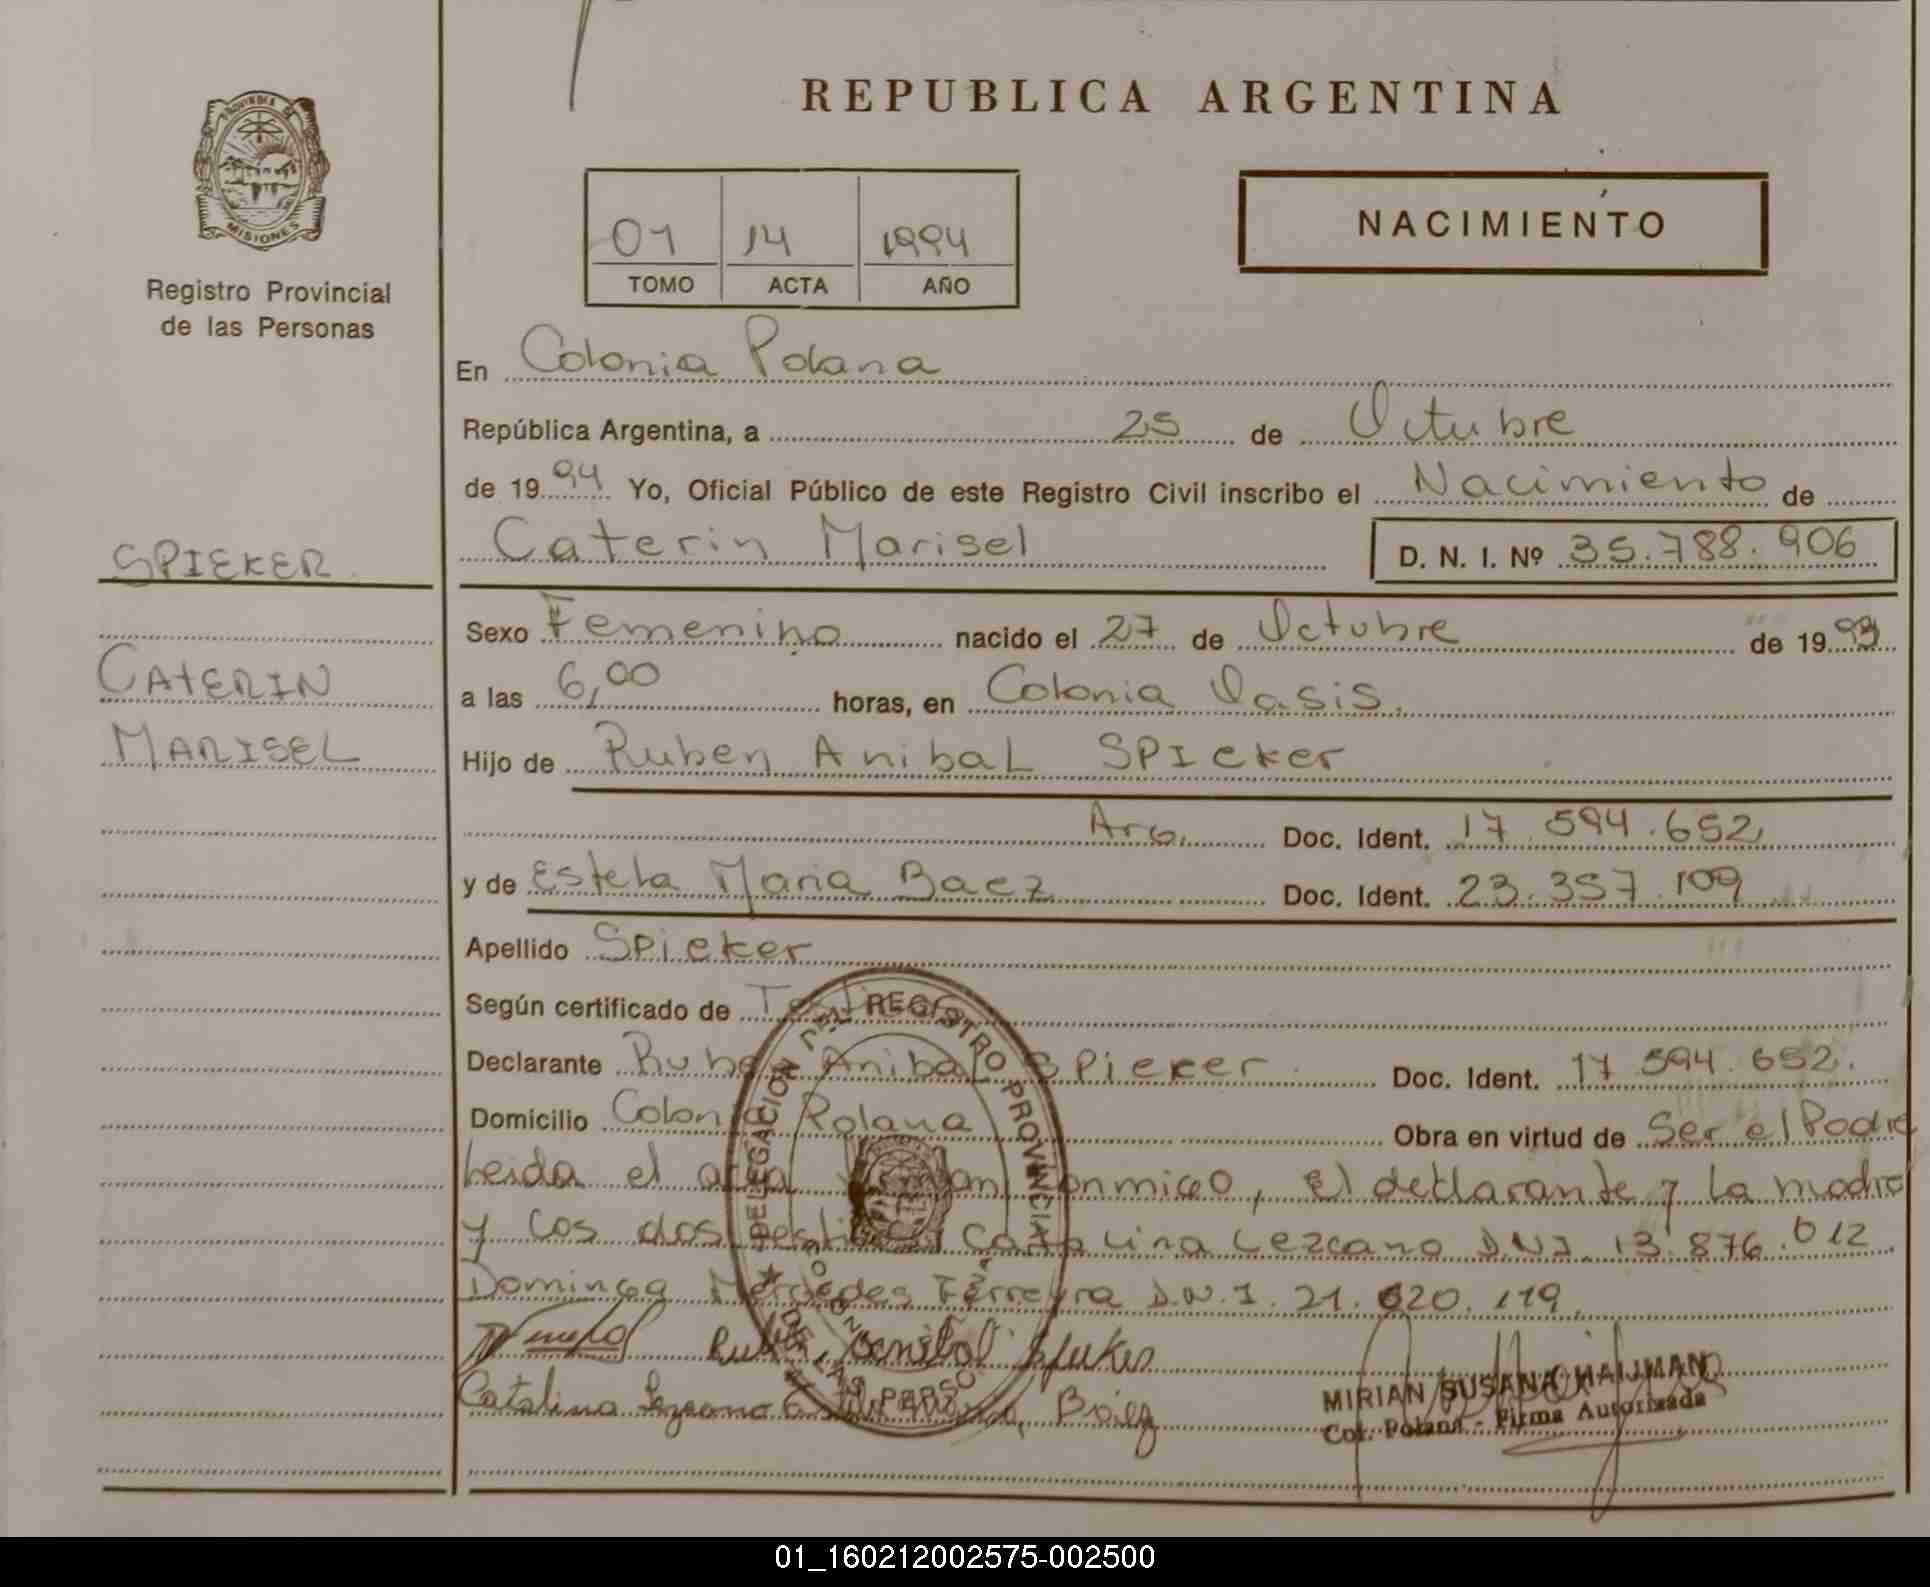 REPUBLICA ARGENTINA
PROVINCIA DE
MISIONES
Registro Provincial
de las Personas
01 14 1994
TOMO ACTA AÑO
NACIMIENTO
En Colonia Polana
República Argentina, a 25 de Octubre
de 1994 Yo, Oficial Público de este Registro Civil inscribo el Nacimiento de
SPIEKER
Caterin Marisel D. N. I. Nº 35.788.906
Sexo Femenino nacido el 27 de Octubre de 1993
CATERIN
a las 6,00 horas, en Colonia Oasis.
MARISEL
Hijo de Ruben Anibal SPIEKER
Arg. Doc. Ident. 17.594.652
y de Estela Maria Baez Doc. Ident. 23.357.109
Apellido Spieker
Según certificado de
Declarante Ruben Anibal Spieker Doc. Ident. 17.594.652.
Domicilio Colonia Polana Obra en virtud de Ser el Padre
Leida el acta conmigo, El declarante y la madre
y los dos testigos Catalina Lezcano DNI. 13.876.012
Dominga Mercedes Ferreyra D.N.I. 21.620.119.
Ruben Anibal Spieker
Catalina Lezcano Baez
DELEGACION DEL REGISTRO PROVINCIAL DE LAS PERSONAS
MIRIAN SUSANA HAIJMAN
Col. Polana - Firma Autorizada
01_160212002575-002500